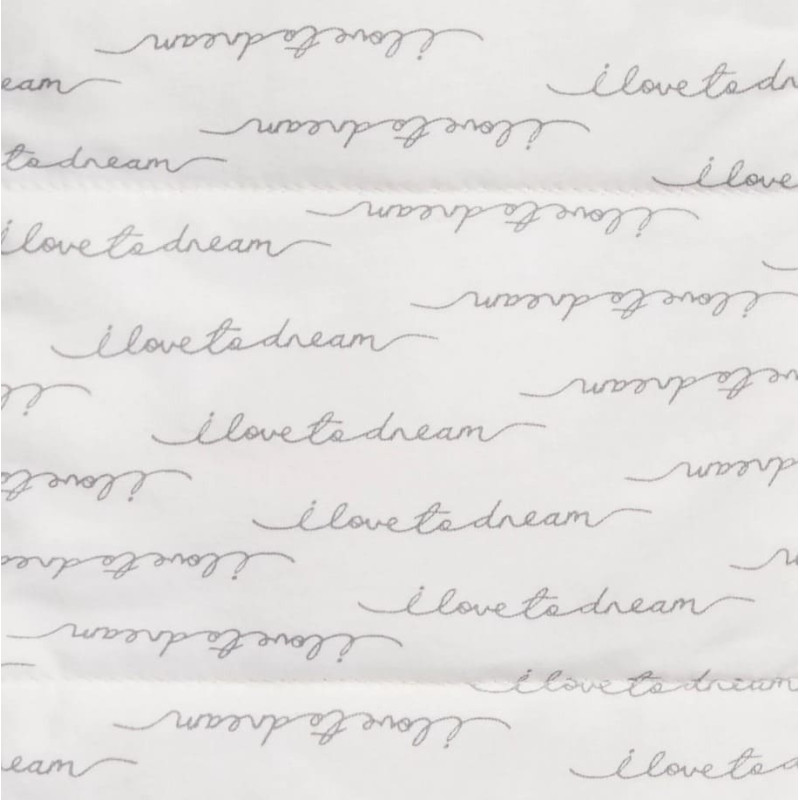 i love to dream
eam
i love to dr
i love to dream
to dream
i love
i love to dream
i love to dream
i love to dream
i love to dream
ve to dream
i l
i love to dream
dream
i love to
i love to dream
i love to dre
i love to dream
i love to dream
i love to dream
i love to dream
eam
i love to d